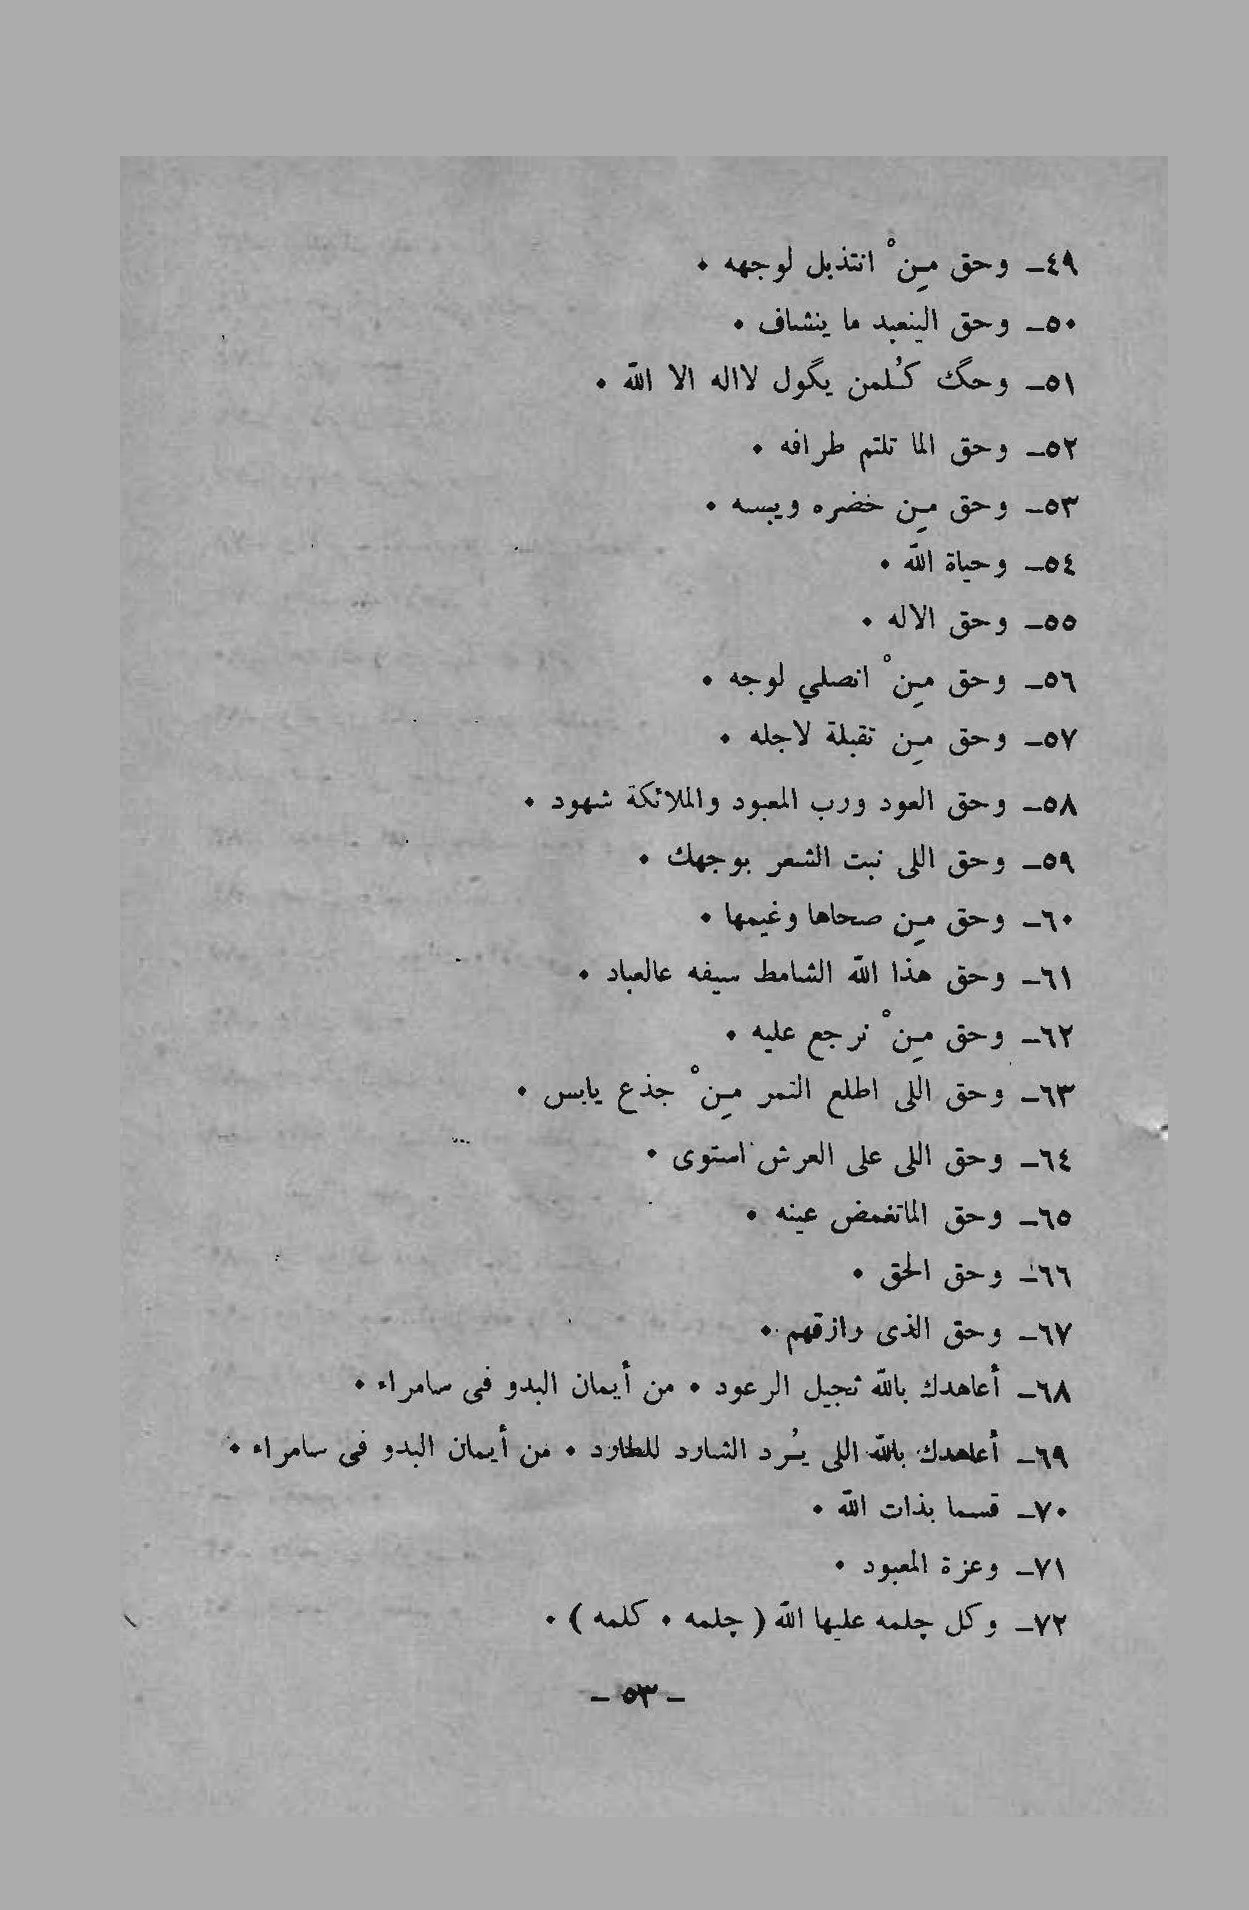 ٤٩ـ وحق مِـنْ انتذبل لوجهه ٠
٥٠ـ وحق الينعبد ما ينشاف ٠
٥١ـ وحگ كُـلمن يگول لااله الا الله ٠
٥٢ـ وحق الما تلتم طرافه ٠
٥٣ـ وحق مِـن خضره ويبسه ٠
٥٤ـ وحياة الله ٠
٥٥ـ وحق الاله ٠
٥٦ـ وحق مِـنْ انصلي لوجه ٠
٥٧ـ وحق مِـن تقبلة لاجله ٠
٥٨ـ وحق العود ورب المعبود والملائكة شهود ٠
٥٩ـ وحق اللى نبت الشعر بوجهك ٠
٦٠ـ وحق مِـن صحاها وغيمها ٠
٦١ـ وحق هذا الله الشامط سيفه عالعباد ٠
٦٢ـ وحق مِـنْ نرجع عليه ٠
٦٣ـ وحق اللى اطلع التمر مِـنْ جذع يابس ٠
٦٤ـ وحق اللى على العرش استوى ٠
٦٥ـ وحق الماتغمض عينه ٠
٦٦ـ وحق الحق ٠
٦٧ـ وحق الذى رازقهم ٠
٦٨ـ أعاهدك بالله ثجيل الرعود ٠ من أيمان البدو فى سامراء ٠
٦٩ـ أعاهدك بالله اللى يُـرد الشارد للطارد ٠ من أيمان البدو فى سامراء ٠
٧٠ـ قسما بذات الله ٠
٧١ـ وعزة المعبود ٠
٧٢ـ وكل چلمه عليها الله ( چلمه ٠ كلمه ) ٠
ـ ٥٣ ـ